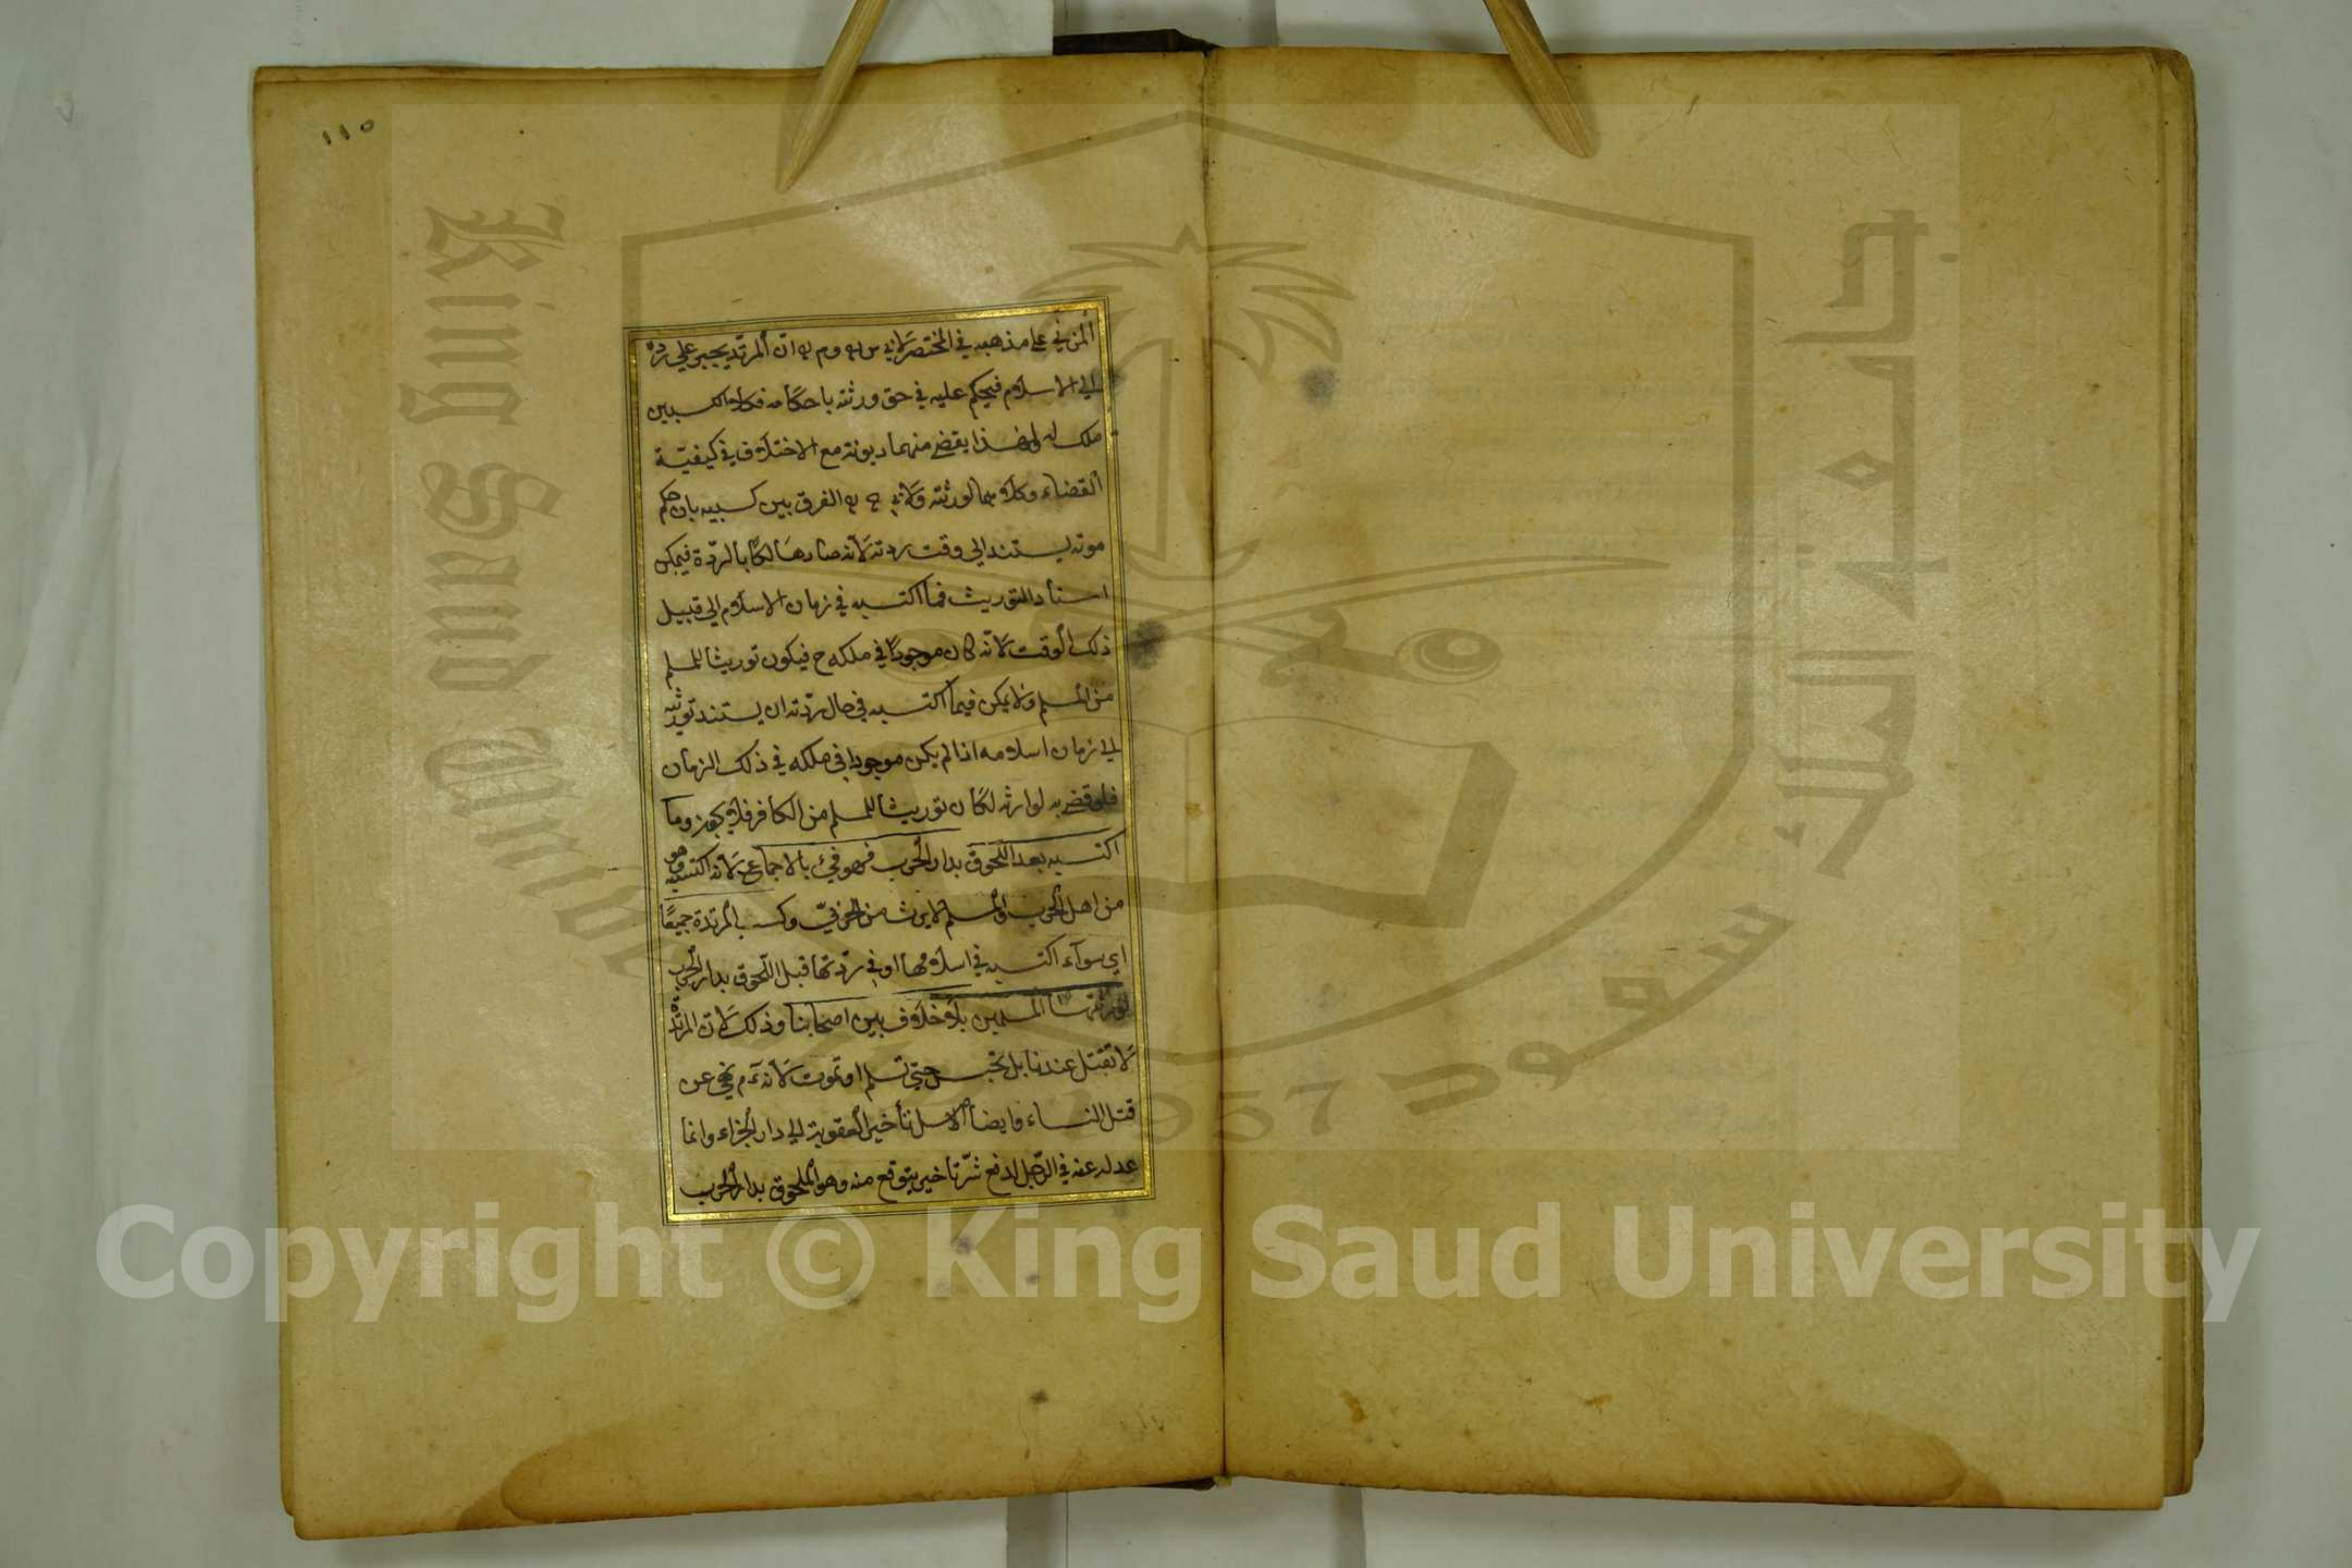 ١١٥
المزني علي مذهبه في المختصر لابي س وم ان المرتد يجبر علي رده
الي الاسلام فيحكم عليه في حق ورثته باحكامه فكلا الكسبين
ملك له ولهذا يقضي منهما ديونه مع الاختلاف في كيفيّة
القضاء وكلاهما لورثته ولابي ح الفرق بين كسبيه بان حكم
موته يستند الي وقت ردته لانه صار هالكًا بالردّة فيمكن
اسناد التوريث فما اكتسبه في زمان الاسلام الي قبيل
ذلك الوقت لانّه كان موجودًا في ملكه ح فيكون توريثا للمسلم
من المسلم ولا يمكن فيما اكتسبه في حال ردّته ان يستند توريثه
الي زمان اسلامه اذا لم يكن موجودا في ملكه في ذلك الزمان
فلو قضي به لوارثه لكان توريثا للمسلم من الكافر فلا يجوز وما
اكتسبه بعد اللحوق بدار الحرب فهو فيئ بالاجماع لانه اكتسبه وهو
من اهل الحرب والمسلم لا يرث من الحربيّ وكسب المرتدة جميعًا
اي سوآء اكتسبه في اسلامها او في ردّتها قبل اللّحوق بدار الحرب
لورثتها المسلمين بلا خلاف بين اصحابنا وذلك لان المرتدّة
لا تقتل عندنا بل تحبس حتي تسلم او تموت لانه ءم نهي عن
قتل النساء وايضا الاصل تأخير العقوبة الي دار الجزاء وانما
عدل عنه في الرّجل لدفع شرّ تاخير يتوقع منه وهو الملحوق بدار الحرب
King Saud University
جامعة الملك سعود
1957
Copyright © King Saud University